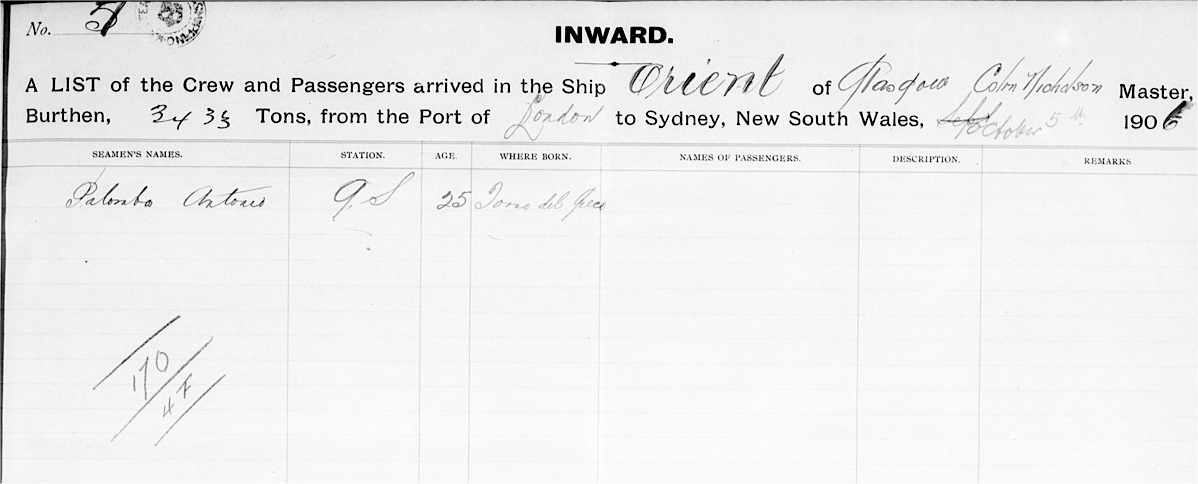 No. 3
INWARD.
A LIST of the Crew and Passengers arrived in the Ship Orient of Glasgow Colin Nicholson Master,
Burthen, 3435 Tons, from the Port of London to Sydney, New South Wales, October 5th 1906
SEAMEN'S NAMES. STATION. AGE. WHERE BORN. NAMES OF PASSENGERS. DESCRIPTION. REMARKS
Palomba Antonio G.S 25 Torre del Greco
170
4 F